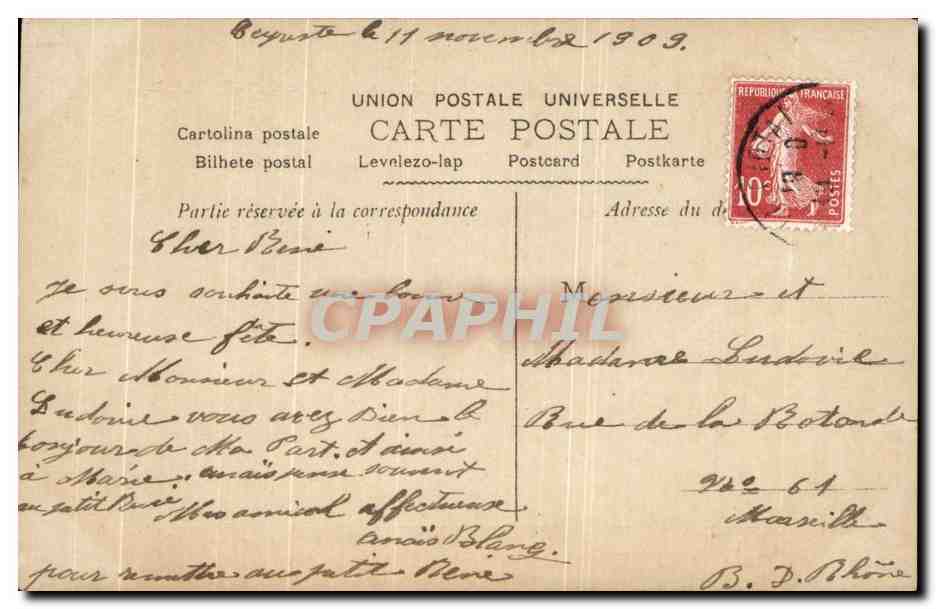 Ceyreste le 11 novembre 1909.
UNION POSTALE UNIVERSELLE
CARTE POSTALE
Cartolina postale
Bilhete postal Levelezo-lap Postcard Postkarte
REPUBLIQUE FRANÇAISE
10c POSTES
Partie réservée à la correspondance
Cher René
Je vous souhaite une bonne
et heureuse fête.
Cher Monsieur et Madame
Ludovie vous avez bien le
bonjour de Ma Part. et aussi
à Marie. anaïs pense souvent
au petit René
Mes amical affectueuse
anaïs Blanc.
pour remettre au petit René
Adresse du d
Monsieur et
Madame Ludovie
Rue de la Rotonde
No 61
Marseille
B. D. Rhône
CPAPHIL